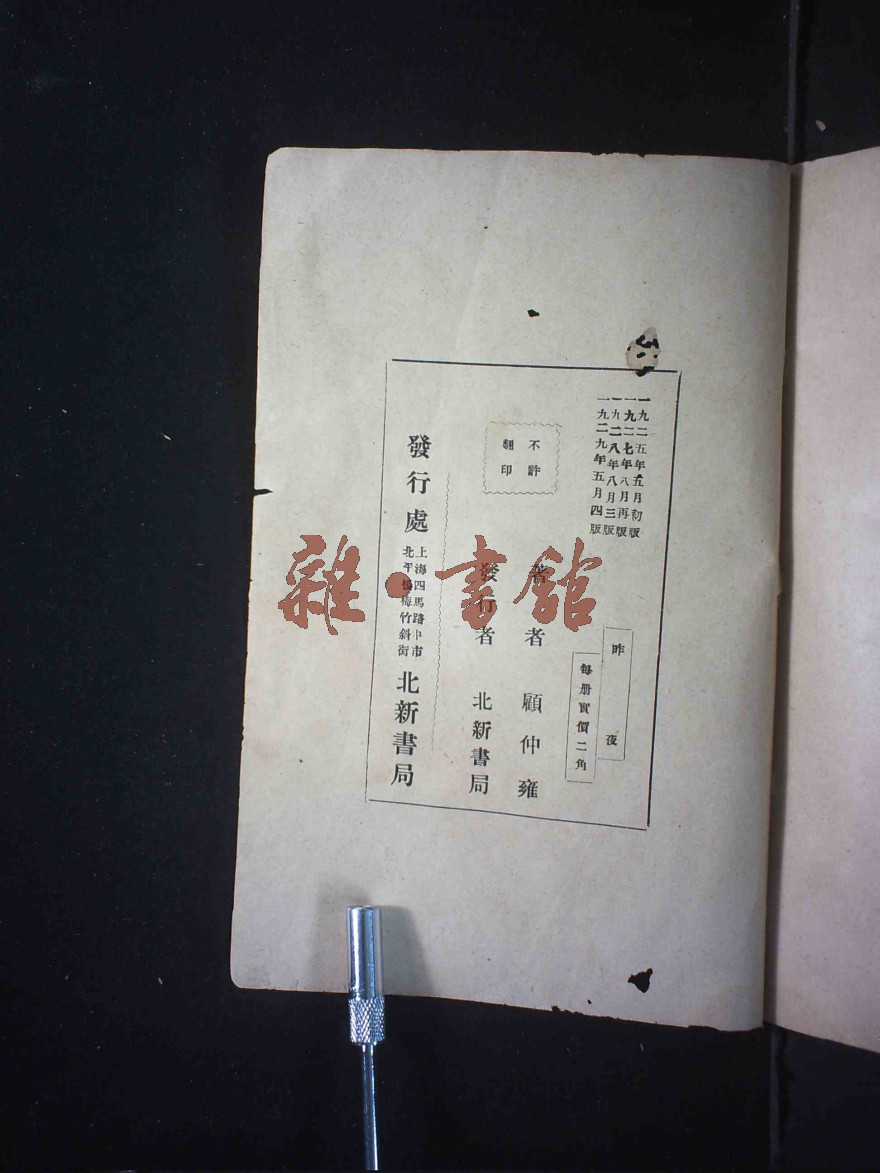 一九二五年五月初版
一九二七年八月再版
一九二八年八月三版
一九二九年五月四版
昨夜
每册實價二角
不許
翻印
著者 顧仲雍
發行者 北新書局
發行處
上海四馬路中市
北平楊梅竹斜街
北新書局
雜·書館